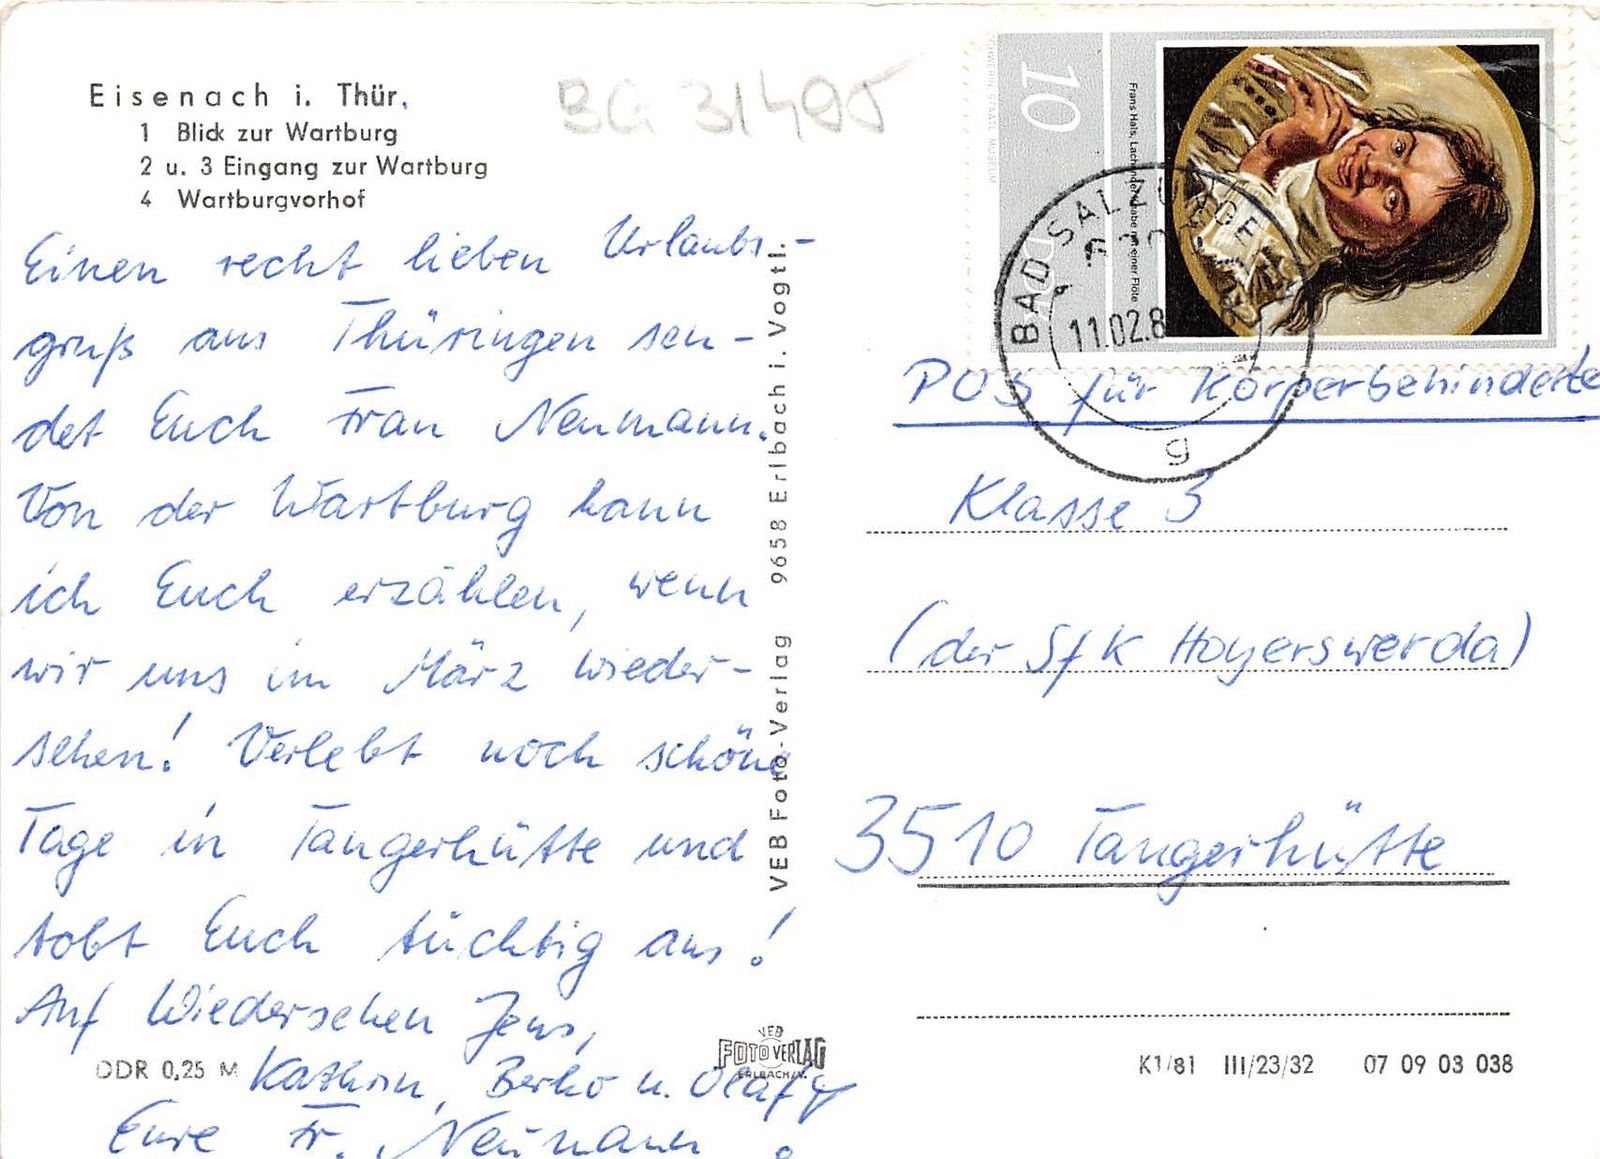 Eisenach i. Thür.
1 Blick zur Wartburg
2 u. 3 Eingang zur Wartburg
4 Wartburgvorhof
BG 31495
Einen recht lieben Urlaubs-
gruß aus Thüringen sen-
det Euch Frau Neumann.
Von der Wartburg kann
ich Euch erzählen, wenn
wir uns im März wieder-
sehen! Verlebt noch schöne
Tage in Tangerhütte und
tobt Euch tüchtig aus!
Auf Wiedersehen Jens,
Kathrin, Berko u. Olaf
Eure Fr. Neumann.
DDR 0,25 M
VEB Foto-Verlag 9658 Erlbach i. Vogtl.
VEB
FOTO VERLAG
ERLBACH/V.
10
DDR
Frans Hals, Lachender Knabe mit einer Flöte
STAATL. MUSEUM
BAD SALZUNGEN
11.02.8
g
POS für Körperbehinderte
Klasse 3
(der SfK Hoyerswerda)
3510 Tangerhütte
K1/81 III/23/32 07 09 03 038